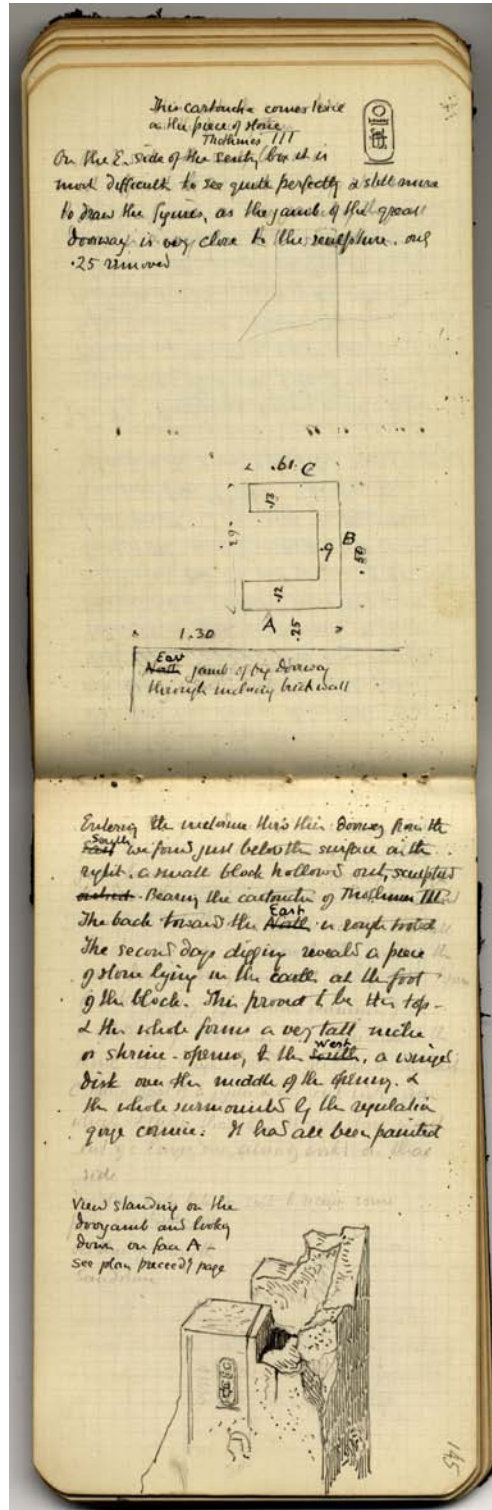 This cartouche comes twice
on this piece of stone
Thothmes III
On the E. side of the sentry box it is
most difficult to see quite perfectly & still more
to draw the figures, as the jamb of this great
doorway is very close to the sculpture. only
.25 removed
.61 C
.13
.9 B
.50
.12
A .25
1.30
East
North jamb of big doorway
through enclosing brick wall
Entering the enclosure thro' this doorway from the
South
East we found just below the surface on the
right. a small block hollowed out, sculptured
Bearing the cartouche of Thothmes III.
East
The back toward the North is rough tooled
The second days digging reveals a piece
of stone lying in the earth at the foot
of the block. This proved to be the top -
& the whole forms a very tall niche
West
or shrine - opening to the South, a winged
disk over the middle of the opening. &
the whole surmounted by the regulation
gorge cornice. It has all been painted
side
View standing on the
doorjamb and looking
down on face A -
see plan preceedg page
145